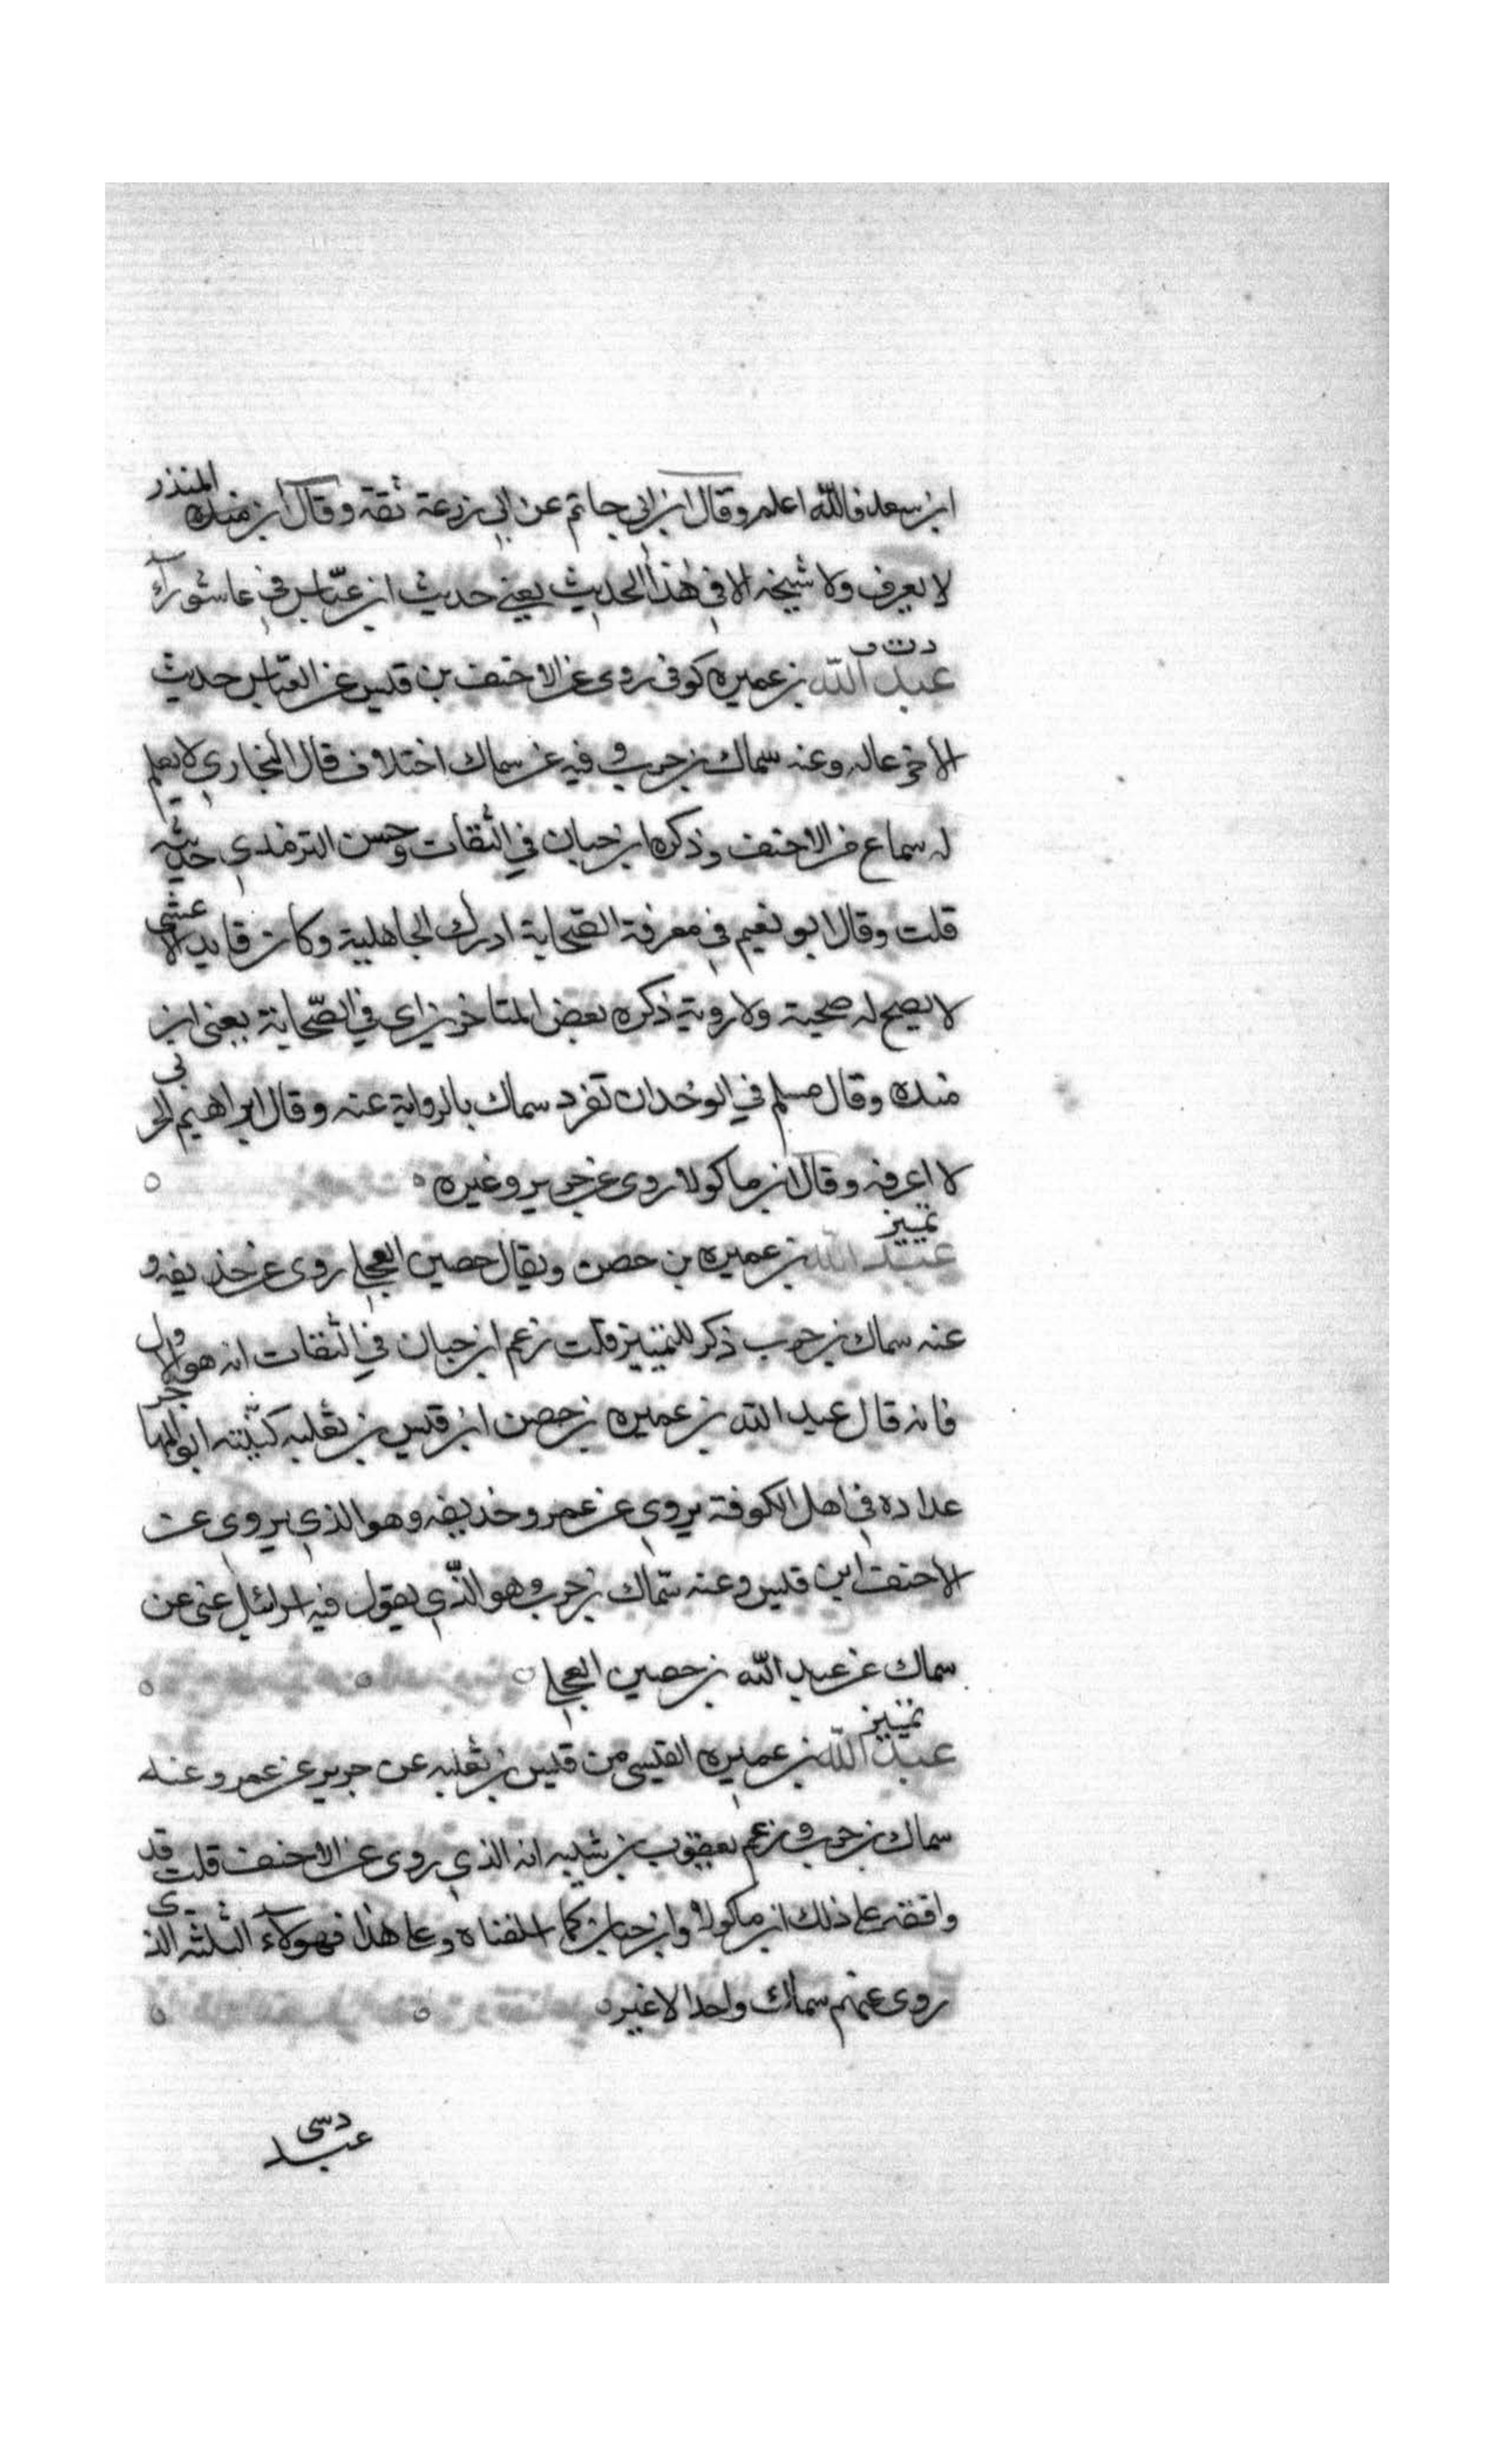 ابن سعد فالله اعلم وقال ابن ابي حاتم عن ابي زرعة ثقة وقال ابن منده المنذر
لا يعرف ولا شيخه الا في هذا الحديث يعني حديث ابن عباس في عاشورآء
د ت ق
عبد الله بن عميره كوفي روى عن الاحنف بن قيس عن العباس حديث
الاوعال وعنه سماك بن حرب وفيه عن سماك اختلاف قال البخاري لا يعلم
له سماع من الاحنف وذكره ابن حبان في الثقات وحسن الترمذي حديثه
قلت وقال ابو نعيم في معرفة الصحابة ادرك الجاهلية وكان قايد الاعشى
لا يصح له صحبة ولا روية ذكره بعض المتاخرين اي في الصحابة يعني ابن
منده وقال مسلم في الوحدان تفرد سماك بالرواية عنه وقال ابراهيم الحربي
لا اعرفه وقال ابن ماكولا روى عن جرير وغيره
تمييز
عبد الله بن عميره بن حصن ويقال حصين العجلي روى عن حذيفه و
عنه سماك بن حرب ذكر للتمييز قلت زعم ابن حبان في الثقات انه هو الاول
فانه قال عبد الله بن عميره بن حصن ابن قيس بن ثعلبه كنيته ابو المهاجر
عداده في اهل الكوفة يروي عن عمر وحذيفه وهو الذي يروي عن
الاحنف ابن قيس وعنه سماك بن حرب وهو الذي يقول فيه اسرائيل عن
سماك عن عبد الله بن حصين العجلي
تمييز
عبد الله بن عميره القيسي من قيس بن ثعلبه عن جرير عن عمر وعنه
سماك بن حرب وزعم يعقوب بن شيبه انه الذي روى عن الاحنف قلت قد
وافقه على ذلك ابن ماكولا وابن حبان كما اسلفناه وعلى هذا فهولآء الثلثه الذي
روى عنهم سماك واحدا لا غير
د سى
عبد